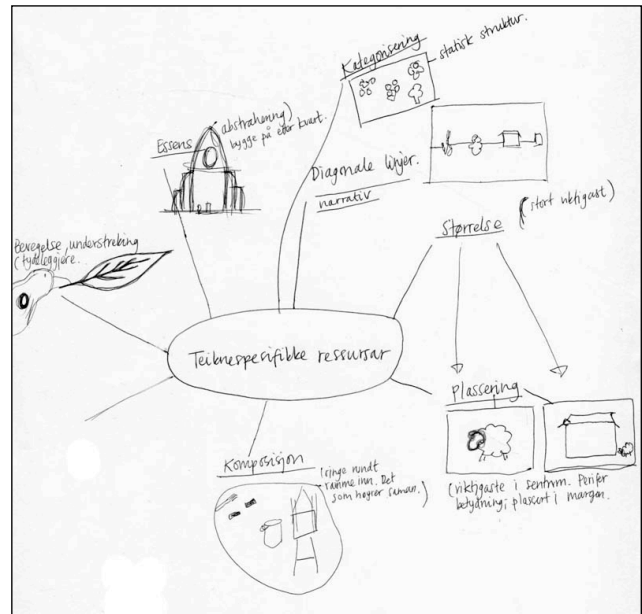 Kategorisering
statisk struktur.
abstrahering)
bygge på etter kvart.
Essens
Diagonale linjer.
narrativ
Størrelse
(stort viktigast)
Bevegelse, understreking
(tydeleggjere.
Teiknespesifikke ressursar
Plassering
(viktigaste i sentrum. Perifer
betydning; plassert i margen.
Komposisjon
(ringe rundt
ramme inn. Det
som høyrer saman.)